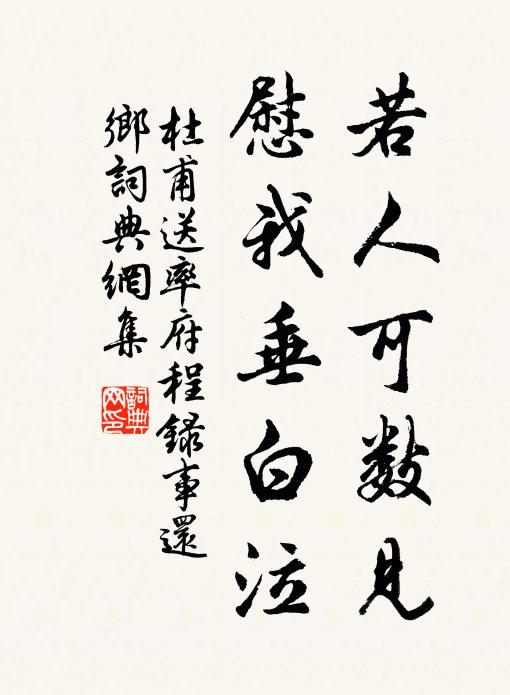 若人可數見
慰我垂白泣
杜甫送率府程録事還
鄉詞典網集
詞典
网印